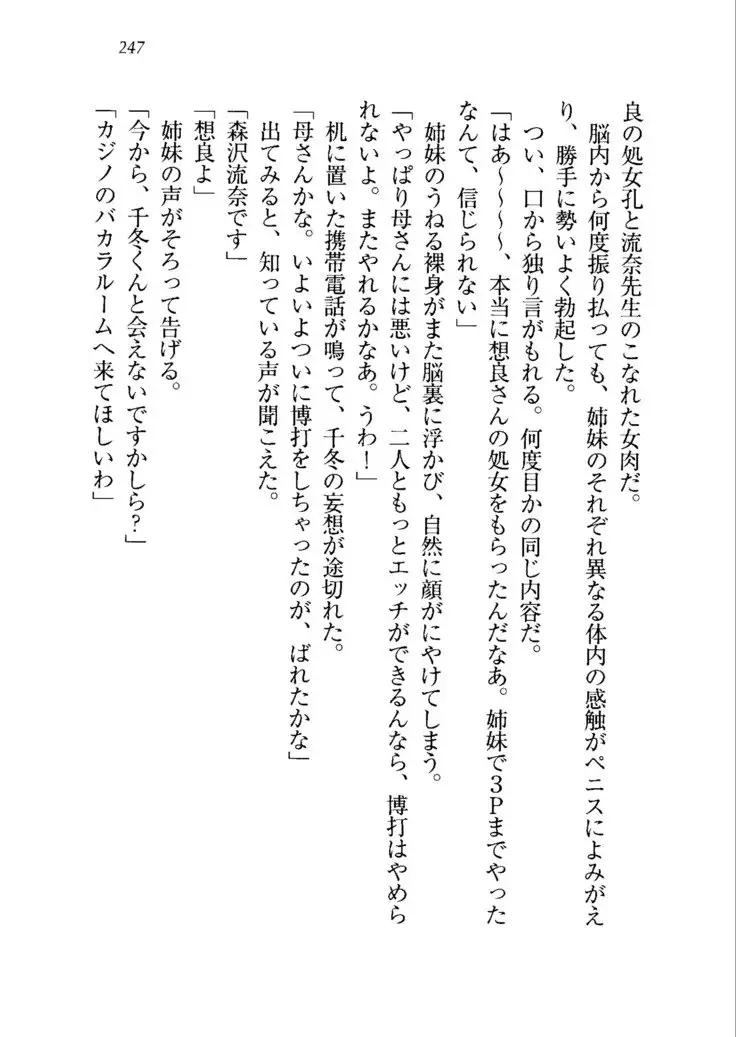 247
良の処女孔と流奈先生のこなれた女肉だ。
脳内から何度振り払っても、姉妹のそれぞれ異なる体内の感触がペニスによみがえ
り、勝手に勢いよく勃起した。
つい、口から独り言がもれる。何度目かの同じ内容だ。
「はあ～～～～、本当に想良さんの処女をもらったんだなあ。姉妹で３Ｐまでやった
なんて、信じられない」
姉妹のうねる裸身がまた脳裏に浮かび、自然に顔がにやけてしまう。
「やっぱり母さんには悪いけど、二人ともっとエッチができるんなら、博打はやめら
れないよ。またやれるかなあ。うわ！」
机に置いた携帯電話が鳴って、千冬の妄想が途切れた。
「母さんかな。いよいよついに博打をしちゃったのが、ばれたかな」
出てみると、知っている声が聞こえた。
「森沢流奈です」
「想良よ」
姉妹の声がそろって告げる。
「今から、千冬くんと会えないですかしら？」
「カジノのバカラルームへ来てほしいわ」